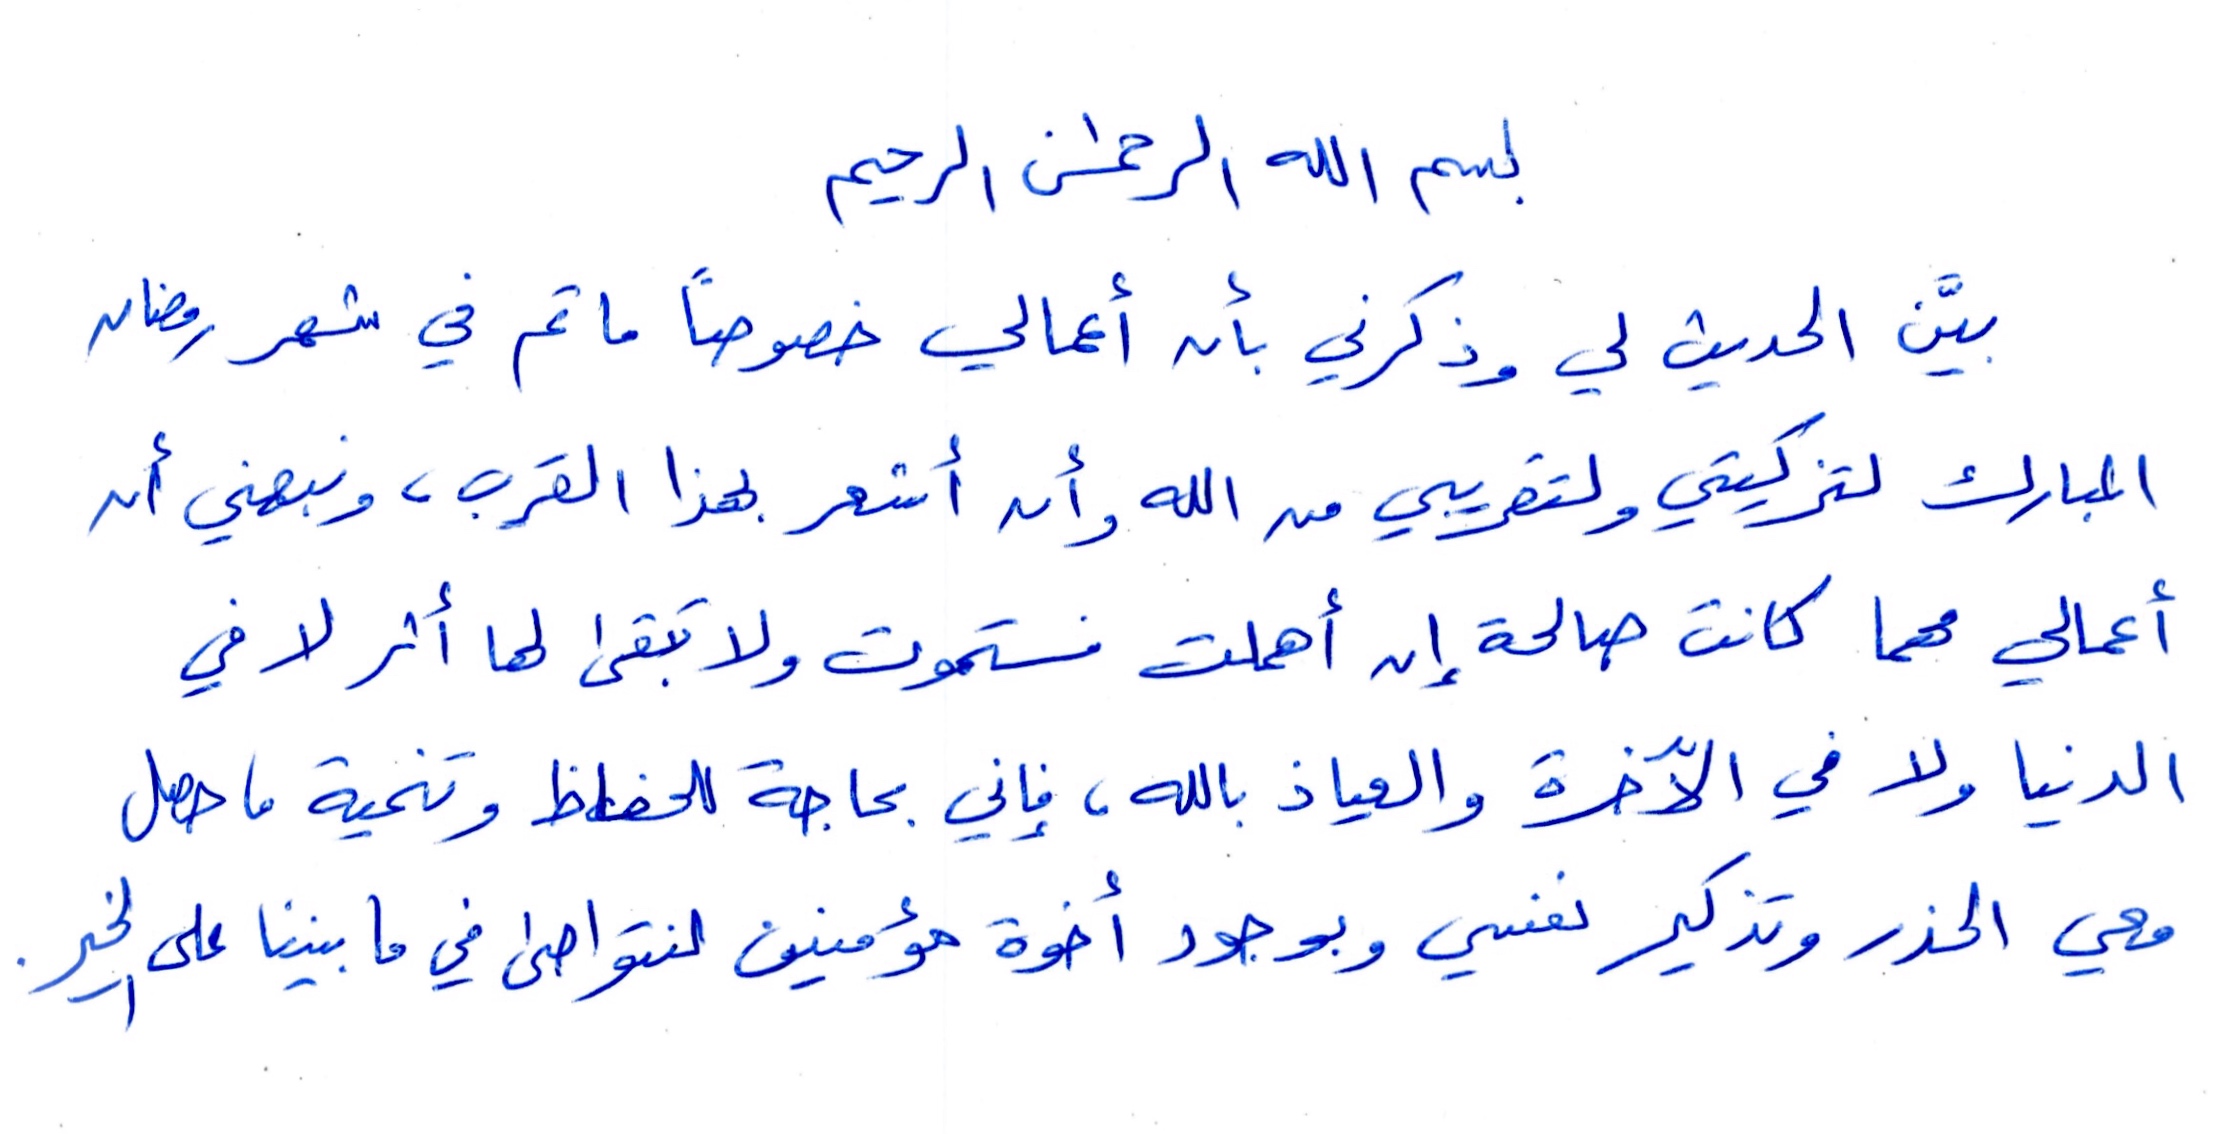 بسم الله الرحمٰن الرحيم
بيَّن الحديث لي وذكرني بأن أعمالي خصوصاً ما تم في شهر رمضان
المبارك لتزكيتي ولتقريبي من الله وأن أشعر بهذا القرب، ونبهني أن
أعمالي مهما كانت صالحة إن أهملت فستموت ولا تبقى لها أثر لا في
الدنيا ولا في الآخرة والعياذ بالله، فإني بحاجة للحفاظ وتنمية ما حصل
وهي الحذر وتذكير نفسي وبوجود أخوة مؤمنين لنتواصى في ما بيننا على الخير.